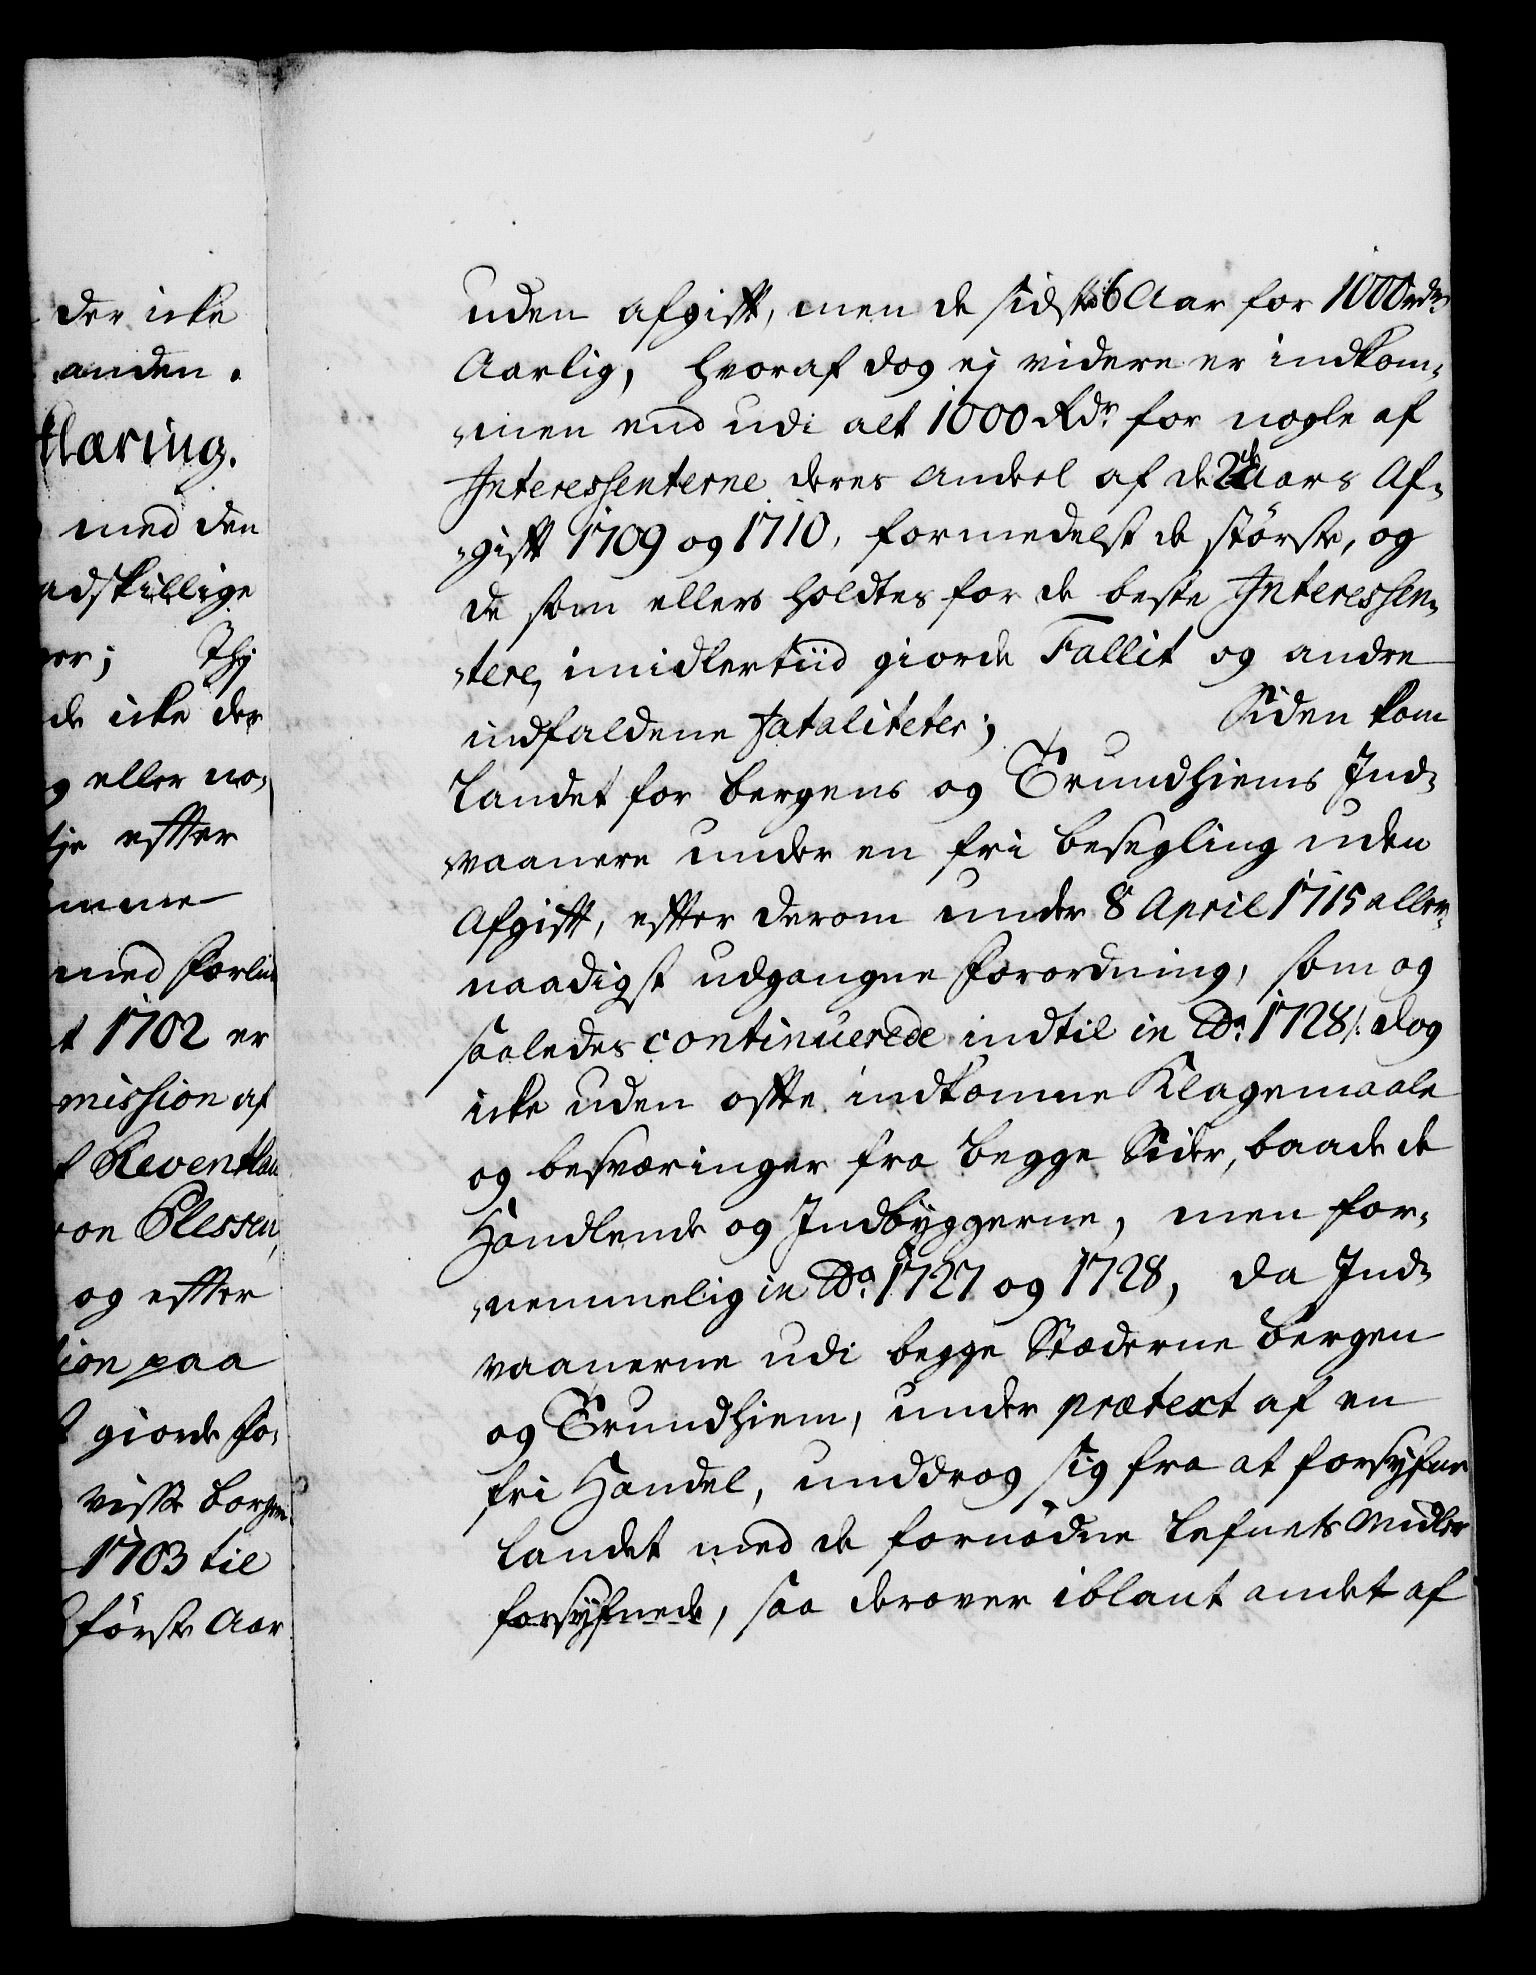 der icke
anden.
klæring.
med den
adskillige
er; Thj
de icke der
g eller no¬
je efter
mme
med forlin
t 1702 er
mission af
f Reventlau
on Plessen,
og efter
tion paa
giorde fo¬
visse borgen
1703 til
første Aar
uden afgift, men de sidste 6 Aar for 1000 rdr
Aarlig, hvoraf dog ej videre er indkom¬
men end udi alt 1000 Rdr for nogle af
Interessenterne deres Andeel af de 2de Aars Af¬
gift 1709 og 1710, formedelst de største, og
de som ellers holdtes for de beste Interessen¬
tere, imidlertiid giorde Fallit og andre
indfaldene fataliteter; Siden kom
Landet for Bergens og Trundhiems Ind¬
vaanere under en fri besegling uden
Afgift, efter derom under 8 April 1715 aller¬
naadigst udgangne forordning, som og
saaledes continuerede indtil in Ao. 1728/: dog
icke uden ofte indkomne Klagemaale
og besværinger fra begge Sider, baade de
Handlende og Indbyggerne, men for¬
nemmelig in Ao. 1727 og 1728, da Ind¬
vaanerne udi begge Stæderne Bergen
og Trundhiem, under prætext af en
fri Handel, unddrog sig fra at forsyfne
Landet med de fornødne Lefnets Midler
forsyfnede, saa derover iblant andet af